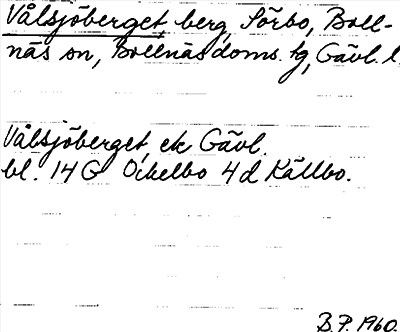 Vålsjöberget, berg, Sörbo, Boll-
näs sn, Bollnäs doms. tg, Gävl. l.
Vålsjöberget, ek Gävl.
bl. 14 G Ockelbo 4 d Källbo.
B.P. 1960.